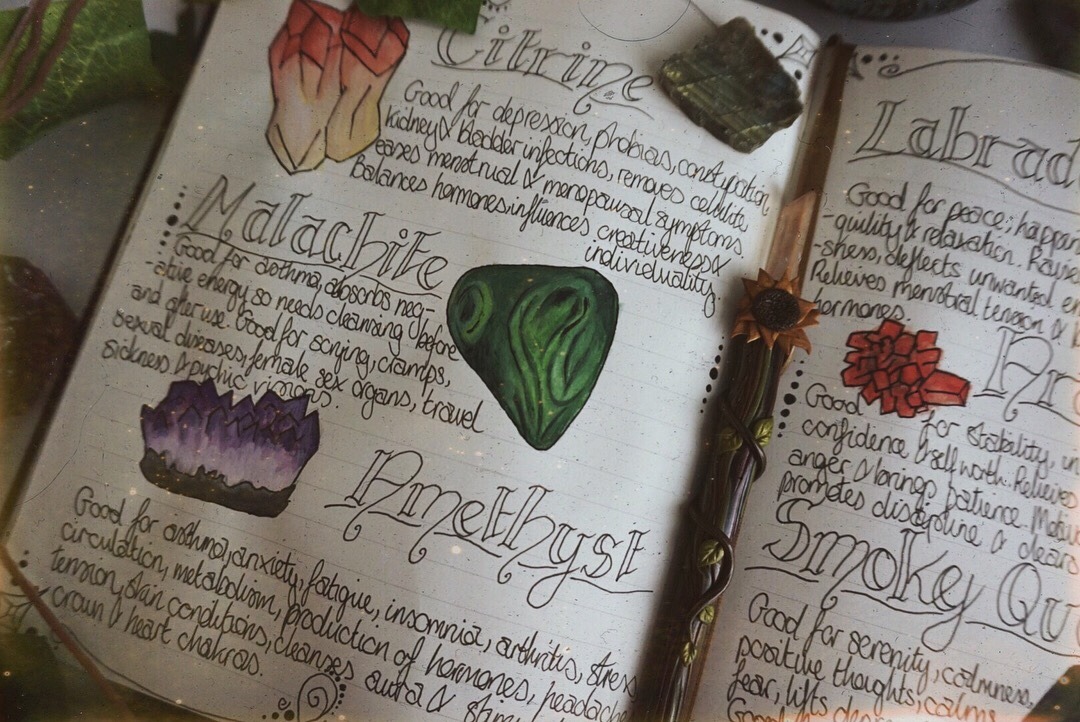 Citrine
Good for depression, phobias, constipation,
kidney & bladder infections, removes cellulite,
eases menstrual & menopausal symptoms.
Balances hormones, influences creativeness &
individuality.
Malachite
Good for asthma, absorbs neg-
-ative energy so needs cleansing before
and after use. Good for scrying, cramps,
sexual diseases, female sex organs, travel
sickness & psychic visions.
Amethyst
Good for asthma, anxiety, fatigue, insomnia, arthritis, stress
circulation, metabolism, production of hormones, headache
tension, skin conditions, cleanses aura &
crown & heart chakras.
Labrad
Good for peace, happin
-quility & relaxation.
-stress, deflects unwanted en
Relieves menstrual tension &
hormones.
Good for stability,
confidence & self worth. Relieves
anger & brings patience.
promotes discipline & clears
Smoky Qu
Good for serenity, calmness,
positive thoughts, calms
fear, lifts
Good